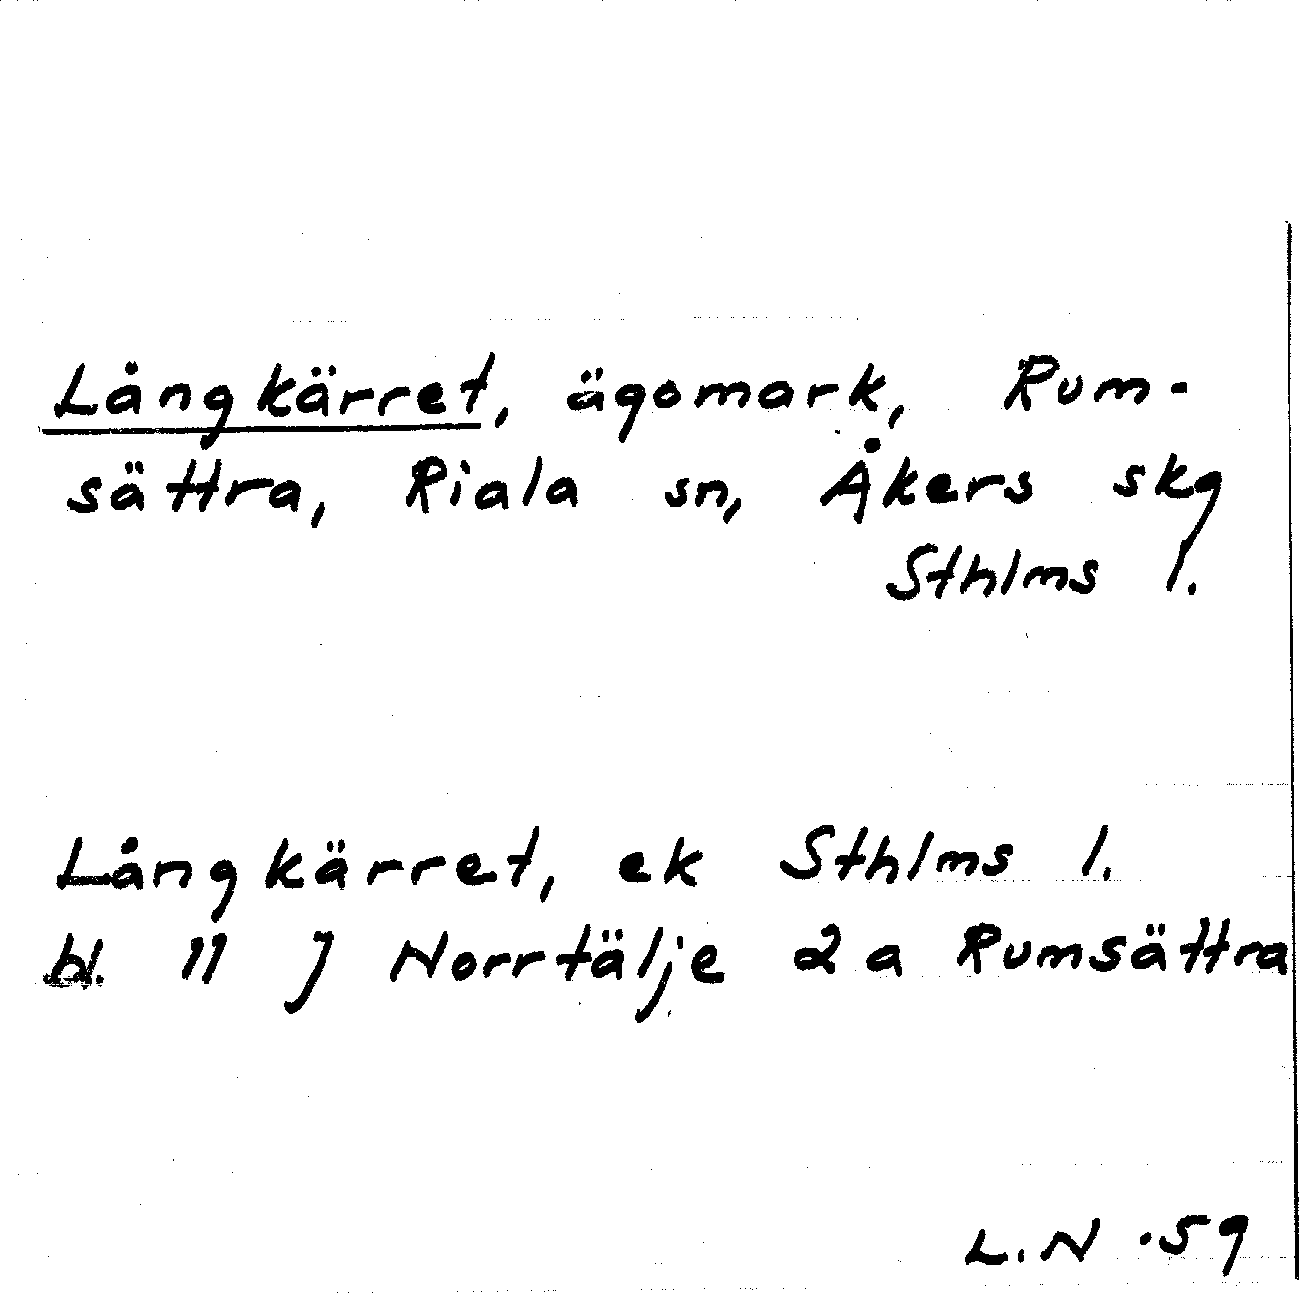 Långkärret, ägomark, Rum-
sättra, Riala sn, Åkers skg
Sthlms l.
Långkärret, ek Sthlms l.
bl. 11 J Norrtälje 2 a Rumsättra
L.N .59